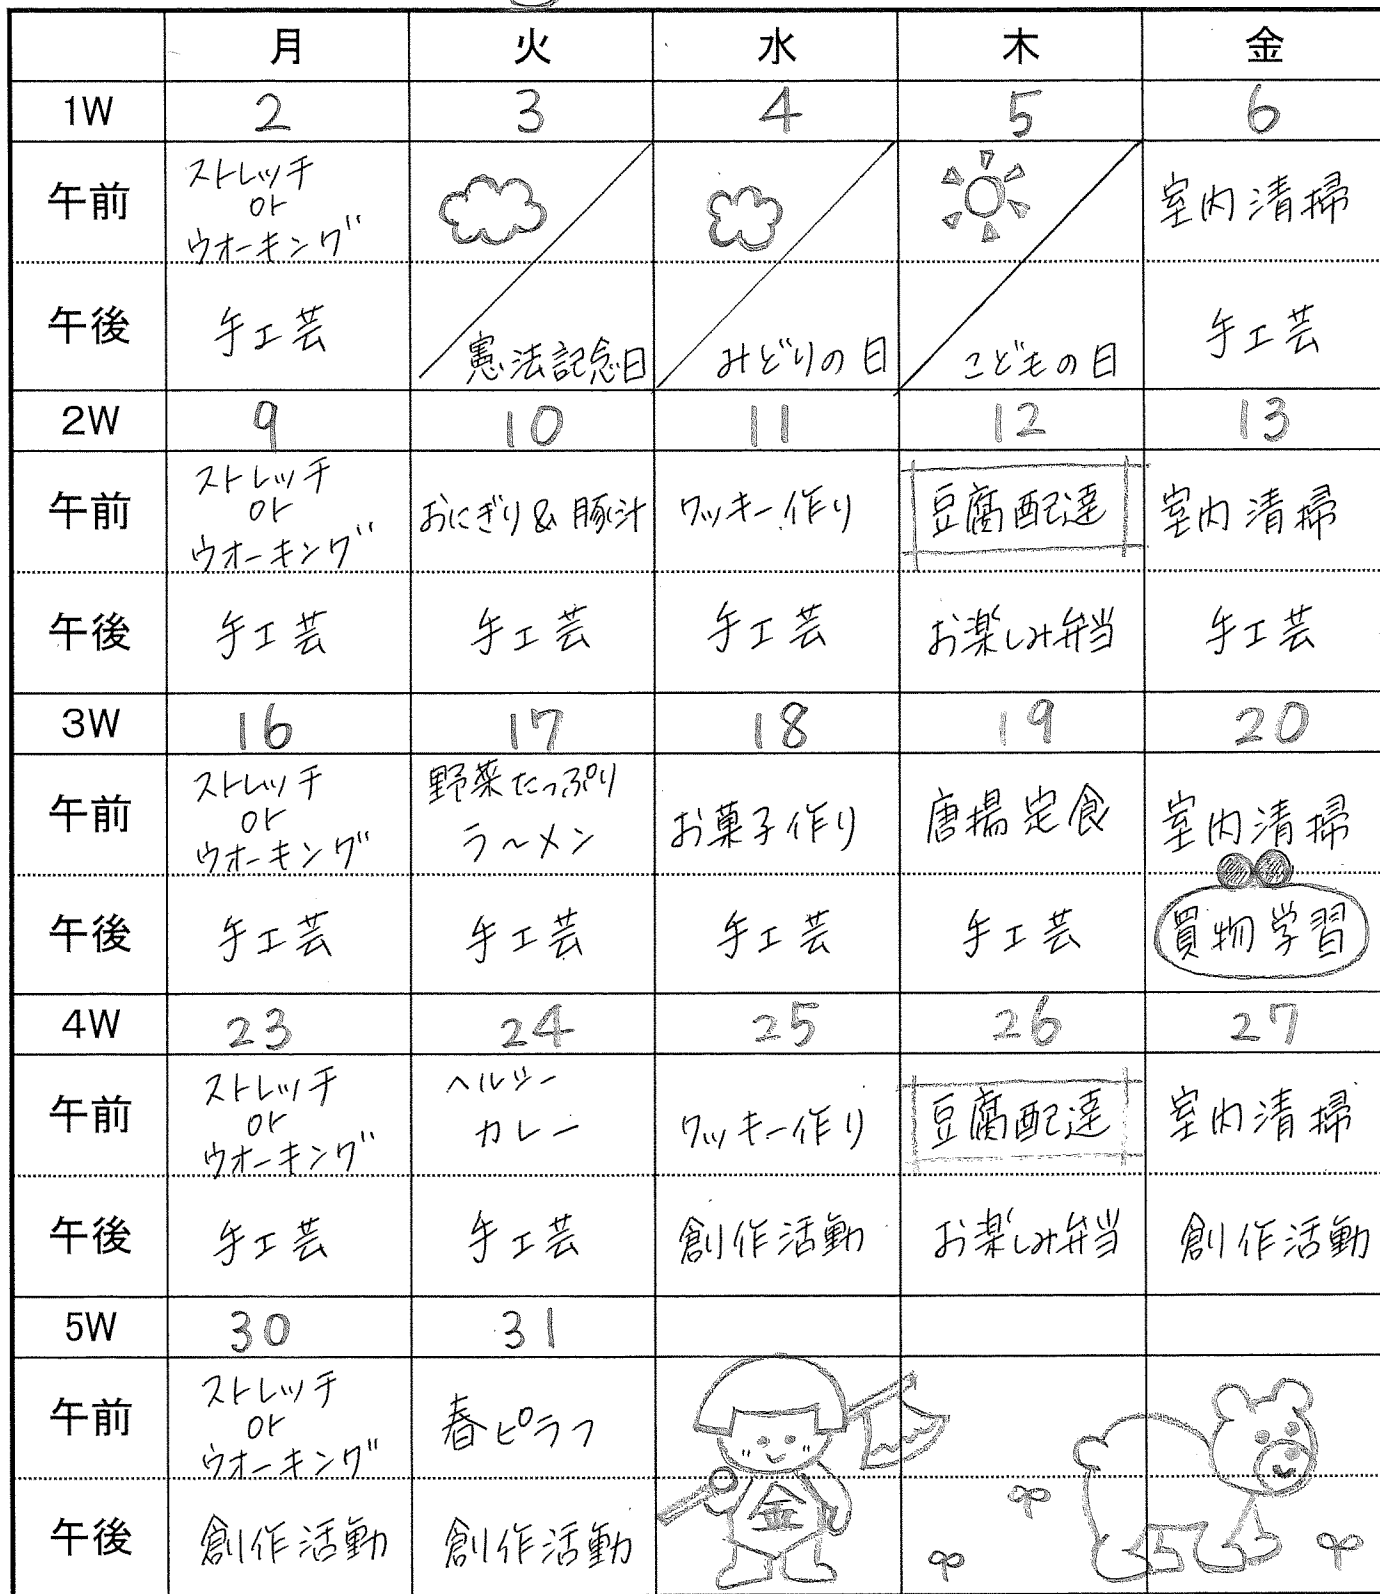 月 火 水 木 金
1W 2 3 4 5 6
午前 ストレッチ or ウオーキング 室内清掃
午後 手工芸 憲法記念日 みどりの日 こどもの日 手工芸
2W 9 10 11 12 13
午前 ストレッチ or ウオーキング おにぎり & 豚汁 クッキー作り 豆腐配達 室内清掃
午後 手工芸 手工芸 手工芸 お楽しみ弁当 手工芸
3W 16 17 18 19 20
午前 ストレッチ or ウオーキング 野菜たっぷり ラ〜メン お菓子作り 唐揚定食 室内清掃
午後 手工芸 手工芸 手工芸 手工芸 買物学習
4W 23 24 25 26 27
午前 ストレッチ or ウオーキング ヘルシー カレー クッキー作り 豆腐配達 室内清掃
午後 手工芸 手工芸 創作活動 お楽しみ弁当 創作活動
5W 30 31
午前 ストレッチ or ウオーキング 春ピラフ
午後 創作活動 創作活動 金